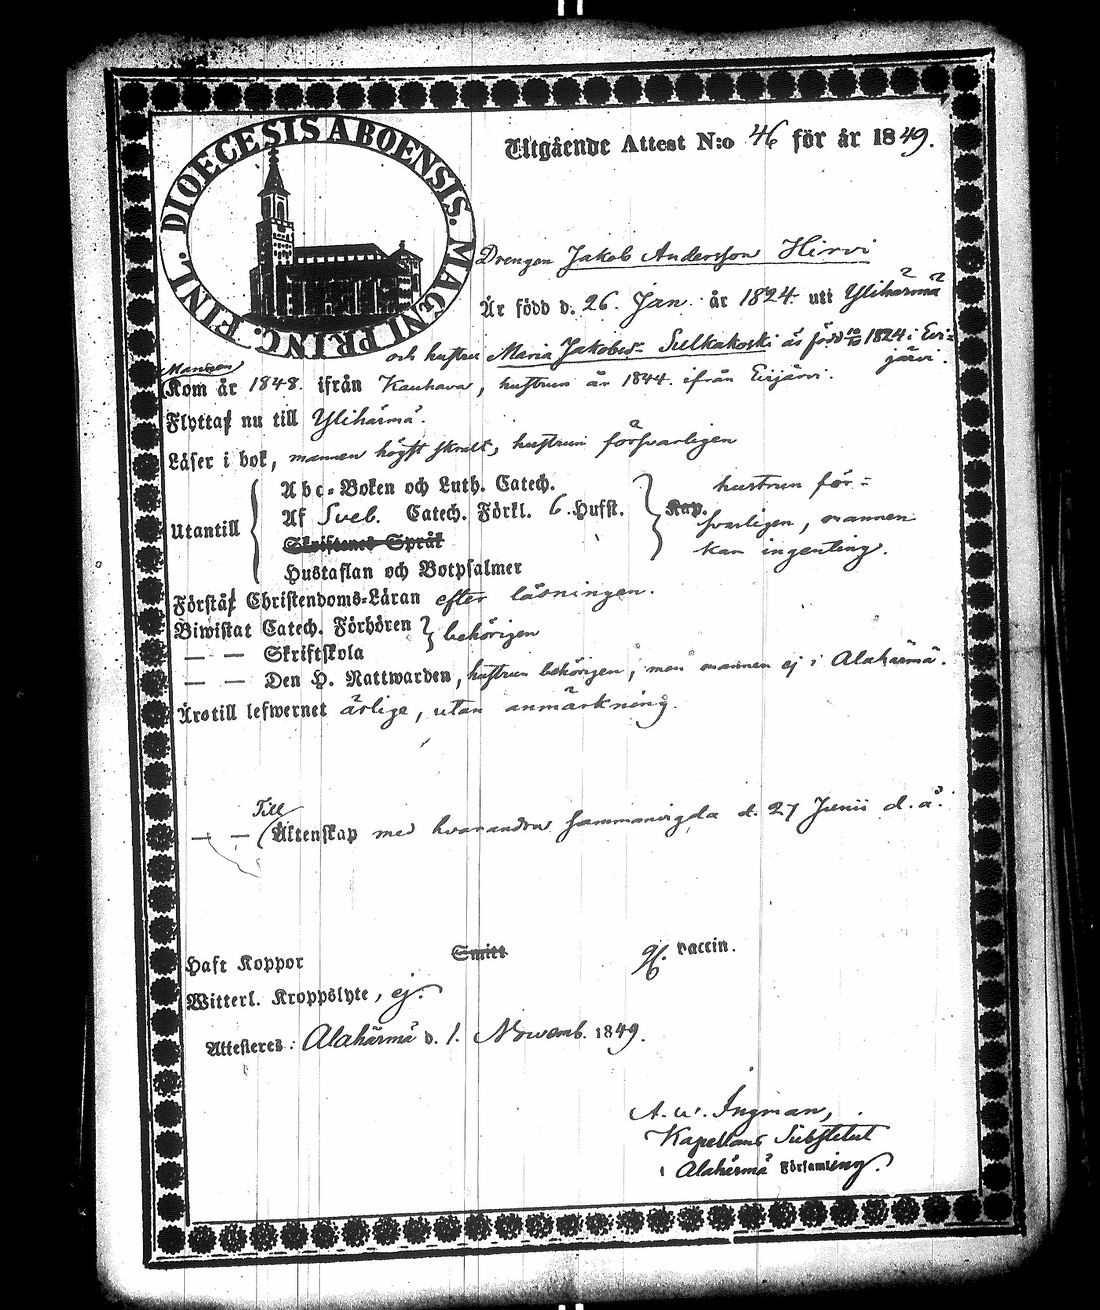 DIOECESIS ABOENSIS. MAGNI PRINC. FINL.
Utgående Attest N:o 46 för år 1849.
Drengen Jakob Andersson Hirvi
Är född d. 26. Jan. år 1824. uti Ylihärmä
och hustru Maria Jakobsd:r Sulkakoski är född 1824 i Evi=
järvi.
Mannen
Kom år 1848. ifrån Kauhava, hustrun år 1844. ifrån Evijärvi.
Flyttaf nu till Ylihärmä.
Läser i bok, mannen högst skralt, hustrun försvarligen
Utantill
Abc-Boken och Luth. Catech.
Af Sveb. Catech. Förkl. 6 Hufst.
Skriftenes Språk
Hustaflan och Botpsalmer
Kap.
hustrun för=
svarligen, mannen
kan ingenting.
Förstår Christendoms-Läran efter läsningen.
Biwistat Catech. Förhören
— — Skriftskola
behörigen
— — Den H. Nattwarden, hustrun behörigen, men mannen ej i Alahärmä.
Äro till lefwernet ärlige, utan anmärkning.
Till
— — Äktenskap med hvarandra sammanvigda d. 27 Junii d. å.
Haft Koppor Smitt vaccin.
Witterl. Kroppslyte, ej.
Attesteres: Alahärmä d. 1. Novemb. 1849.
A. W. Ingman,
Kapellans Substitut
i Alahärmä Församling.